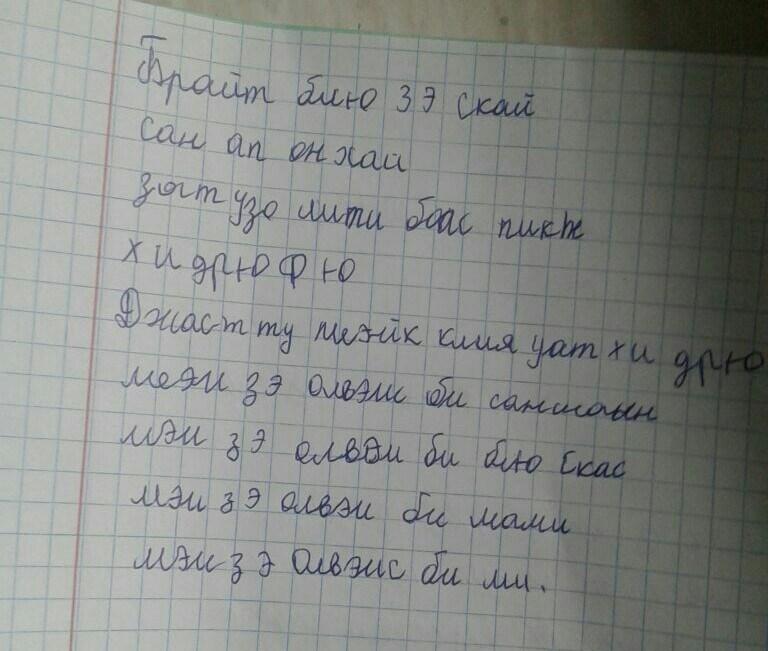 Брайт блю зэ скай
сан ап он хай
зат узо литл боас пикж
хи дрю ф ю
Джаст ту мэйк клия уат хи дрю
меэи зэ олвэис би саншаын
мэи зэ олвэи би блю скас
мэи зэ олвэи би мами
мэи зэ олвэис би ми.